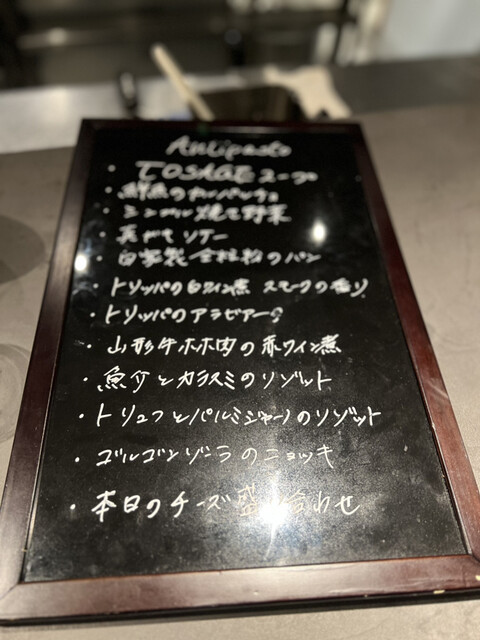 Antipasto
・TOSAGE スープ
・鮮魚のカルパッチョ
・シンプル焼き野菜
・真ダチ ソテー
・自家製 全粒粉のパン
・トリッパの白ワイン煮 スモークの香り
・トリッパのアラビアータ
・山形牛ホホ肉の赤ワイン煮
・魚介とカラスミのリゾット
・トリュフとパルミジャーノのリゾット
・ゴルゴンゾーラのニョッキ
・本日のチーズ盛り合わせ